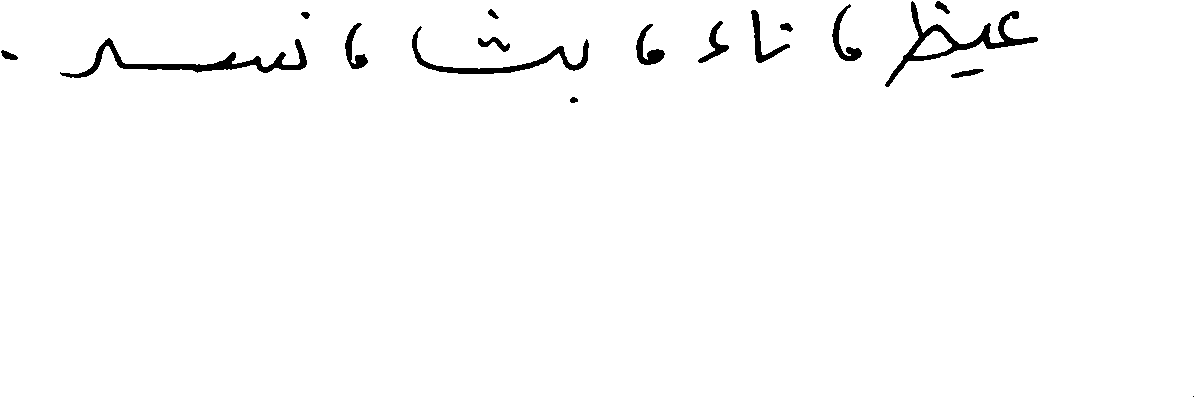 عيظ ، ناء ، بث ، نسر .